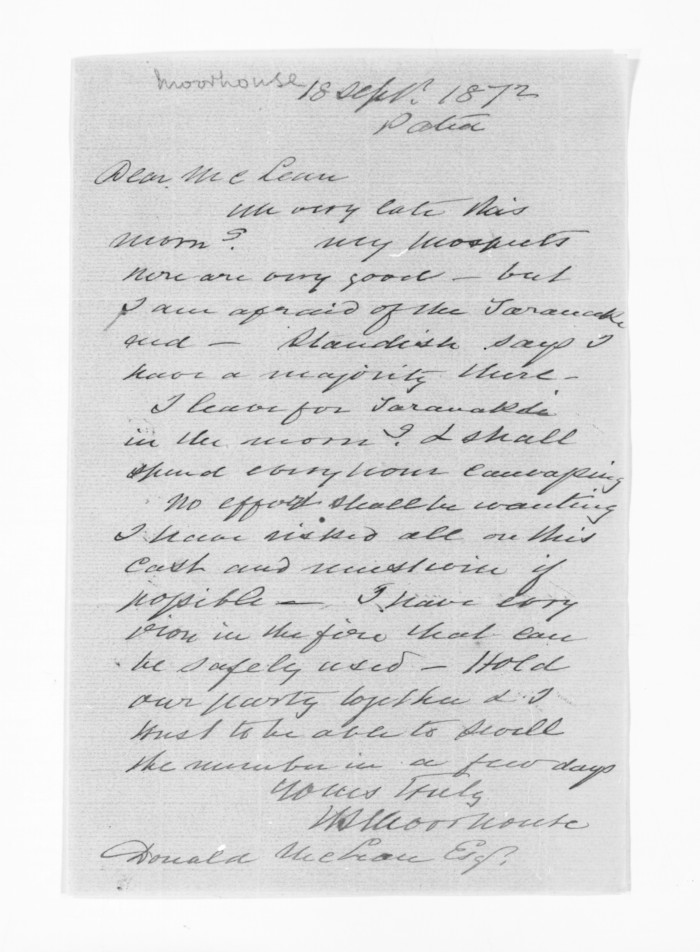 Moorhouse
18 Sept. 1872
Patea
Dear McLean
very late this
morng. my prospects
here are very good — but
I am afraid of the Taranaki
end — Standish says I
have a majority there —
I leave for Taranaki
in the morng. & shall
spend every hour canvassing
No effort shall be wanting
I have risked all on this
cast and must win if
possible — I have every
iron in the fire that can
be safely used — Hold
our party together & I
trust to be able to swell
the number in a few days
Yours truly
WS Moorhouse
Donald McLean Esq.